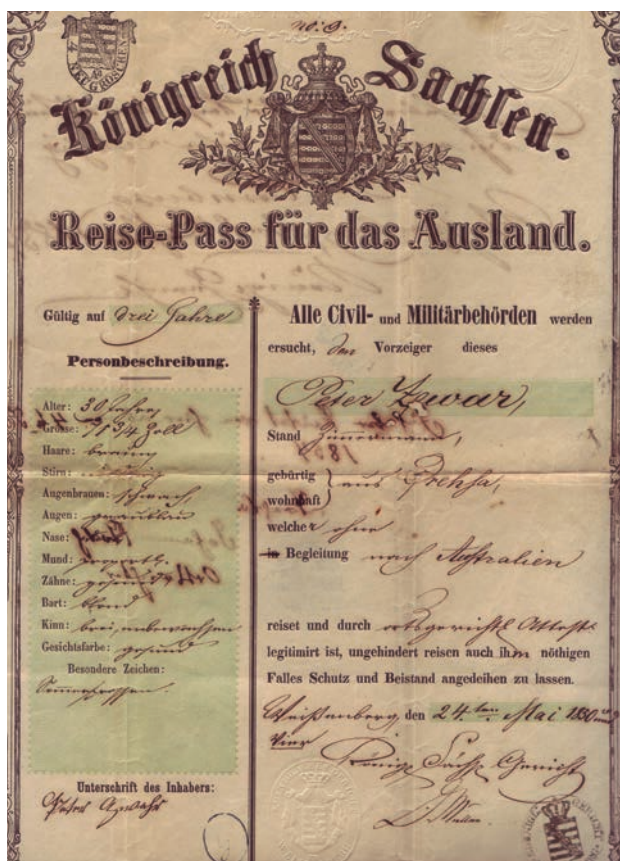 No: 9.
4
NEUGROSCHEN
Königreich Sachsen.
Reise-Pass für das Ausland.
Gültig auf drei Jahre
Personbeschreibung.
Alter: 30 Jahre,
Grösse: 71 3/4 Zoll
Haare: braun
Stirn:
Augenbrauen: schwach
Augen: graublau
Nase:
Mund:
Zähne: gesund
Bart: blond
Kinn: breit, unbewachsen
Gesichtsfarbe: gesund
Besondere Zeichen:
Sommersprossen.
Unterschrift des Inhabers:
Peter
Alle Civil- und Militärbehörden werden
ersucht, den Vorzeiger dieses
Peter Zwar,
Stand Zimmermann,
gebürtig
wohnhaft
aus Drehsa,
welcher ohne
in Begleitung nach Australien
reiset und durch ortsgerichtl. Attest
legitimirt ist, ungehindert reisen auch ihm nöthigen
Falles Schutz und Beistand angedeihen zu lassen.
Weißenberg, den 24ten Mai 1850
vier
Königl. Sächs. Gericht